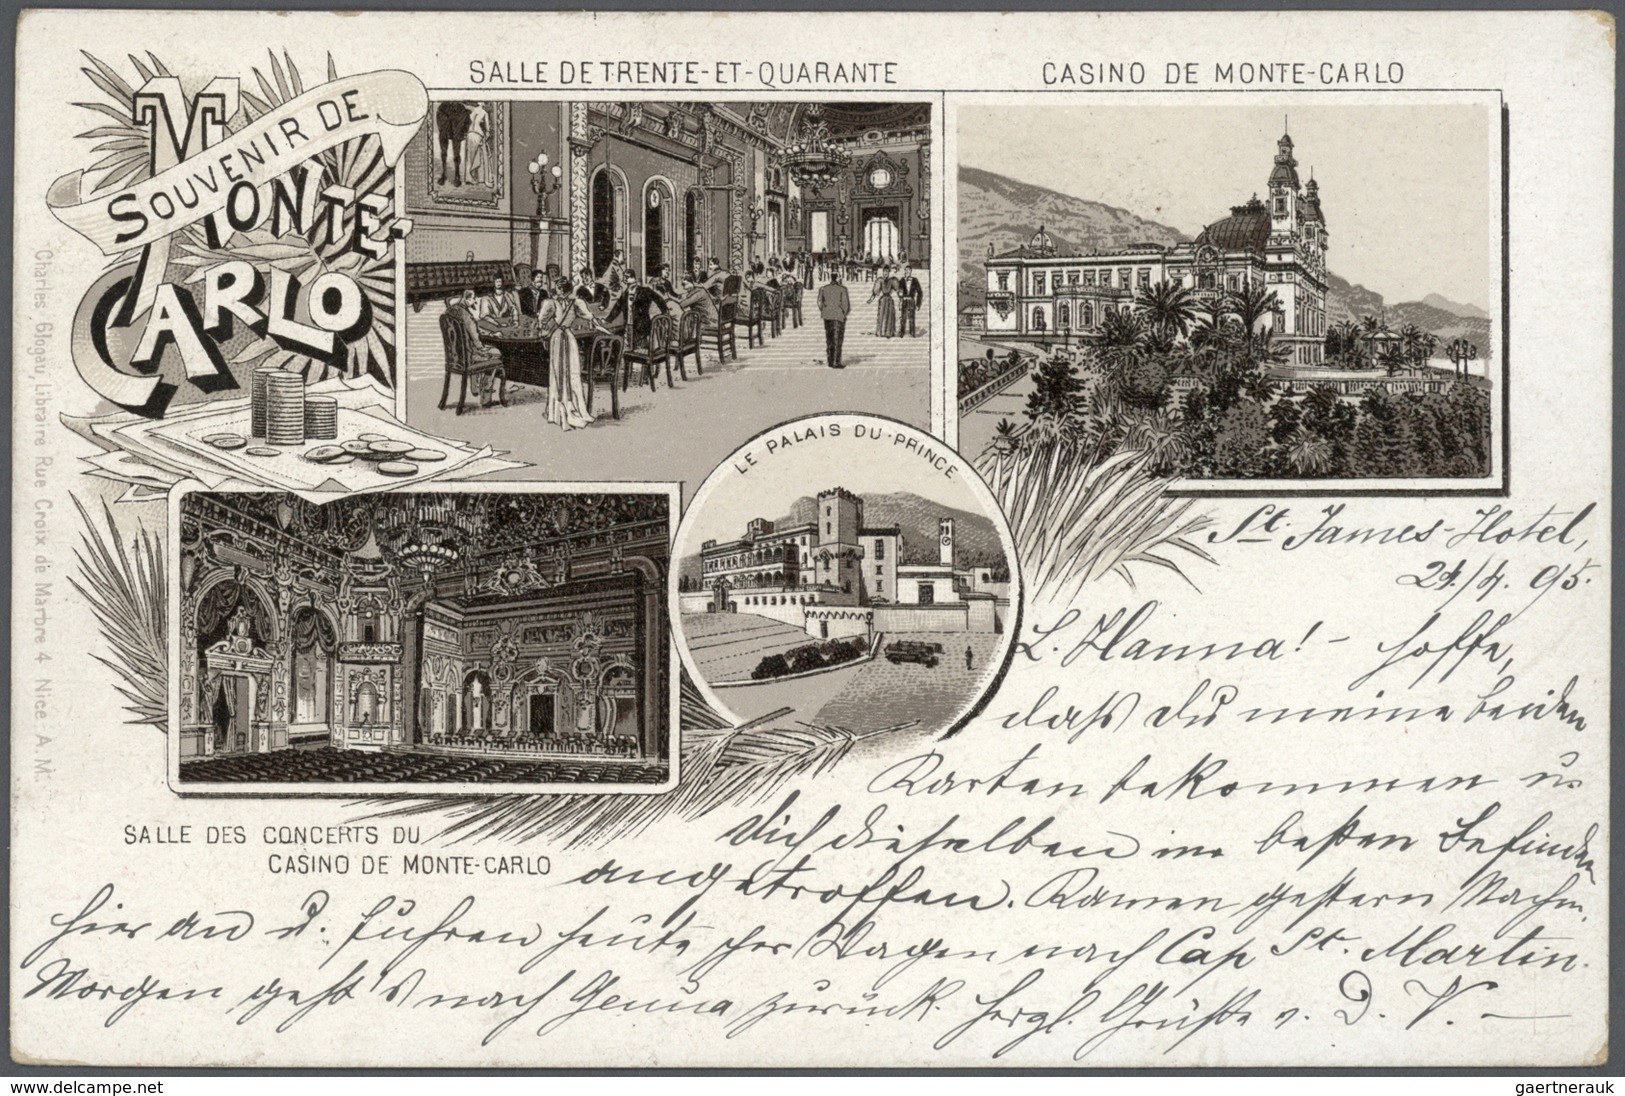 SOUVENIR DE
MONTE-
CARLO
SALLE DE TRENTE-ET-QUARANTE
CASINO DE MONTE-CARLO
LE PALAIS DU PRINCE
SALLE DES CONCERTS DU
CASINO DE MONTE-CARLO
Charles Glogau, Libraire Rue Croix de Marbre 4 Nice A.M.
St. James-Hotel,
24./4. 95.
L. Hanna! - hoffe,
daß du meine beiden
Karten bekommen u.
dich dieselben im besten Befinden
angetroffen. Kamen gestern Nachm.
hier an u. fuhren heute per Wagen nach Cap St. Martin.
Morgen geht's nach Genua zurück. Herzl. Grüße v. D. V. -
www.delcampe.net
gaertnerauk